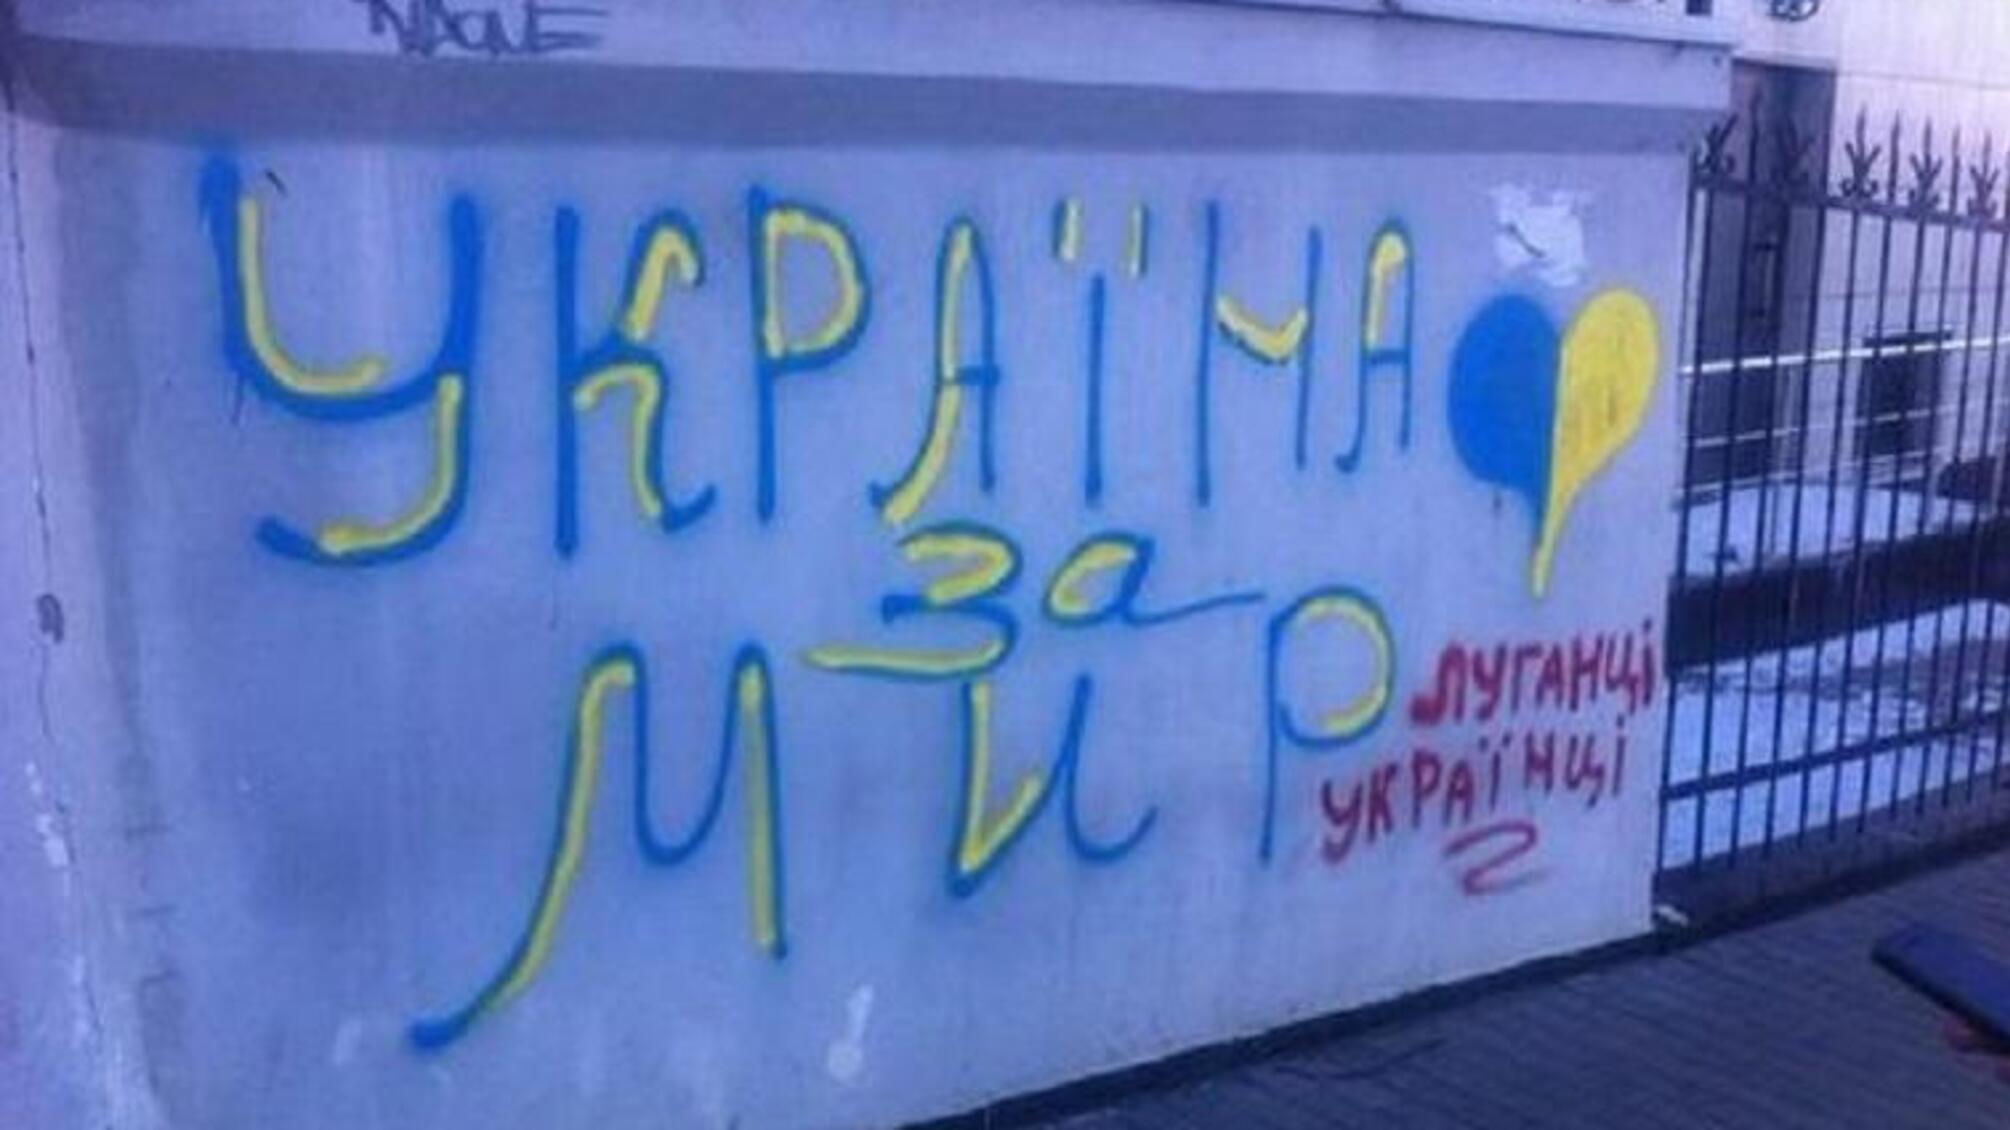 УКРАЇНА
за
МИР
ЛУГАНЦІ
УКРАЇНЦІ